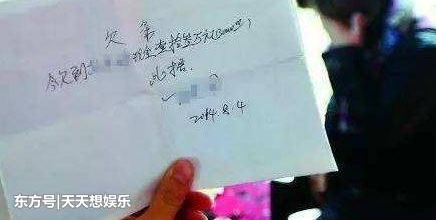 欠条
今欠到 现金叁拾万元(300000元)
此据.
2014.8.4
东方号|天天想娱乐